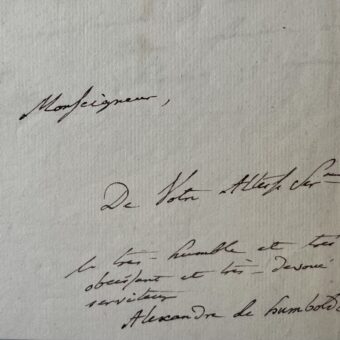 Monseigneur,
De Votre Altesse Ser^me
le très-humble et très
obéissant et très-devoué
serviteur
Alexandre de Humboldt